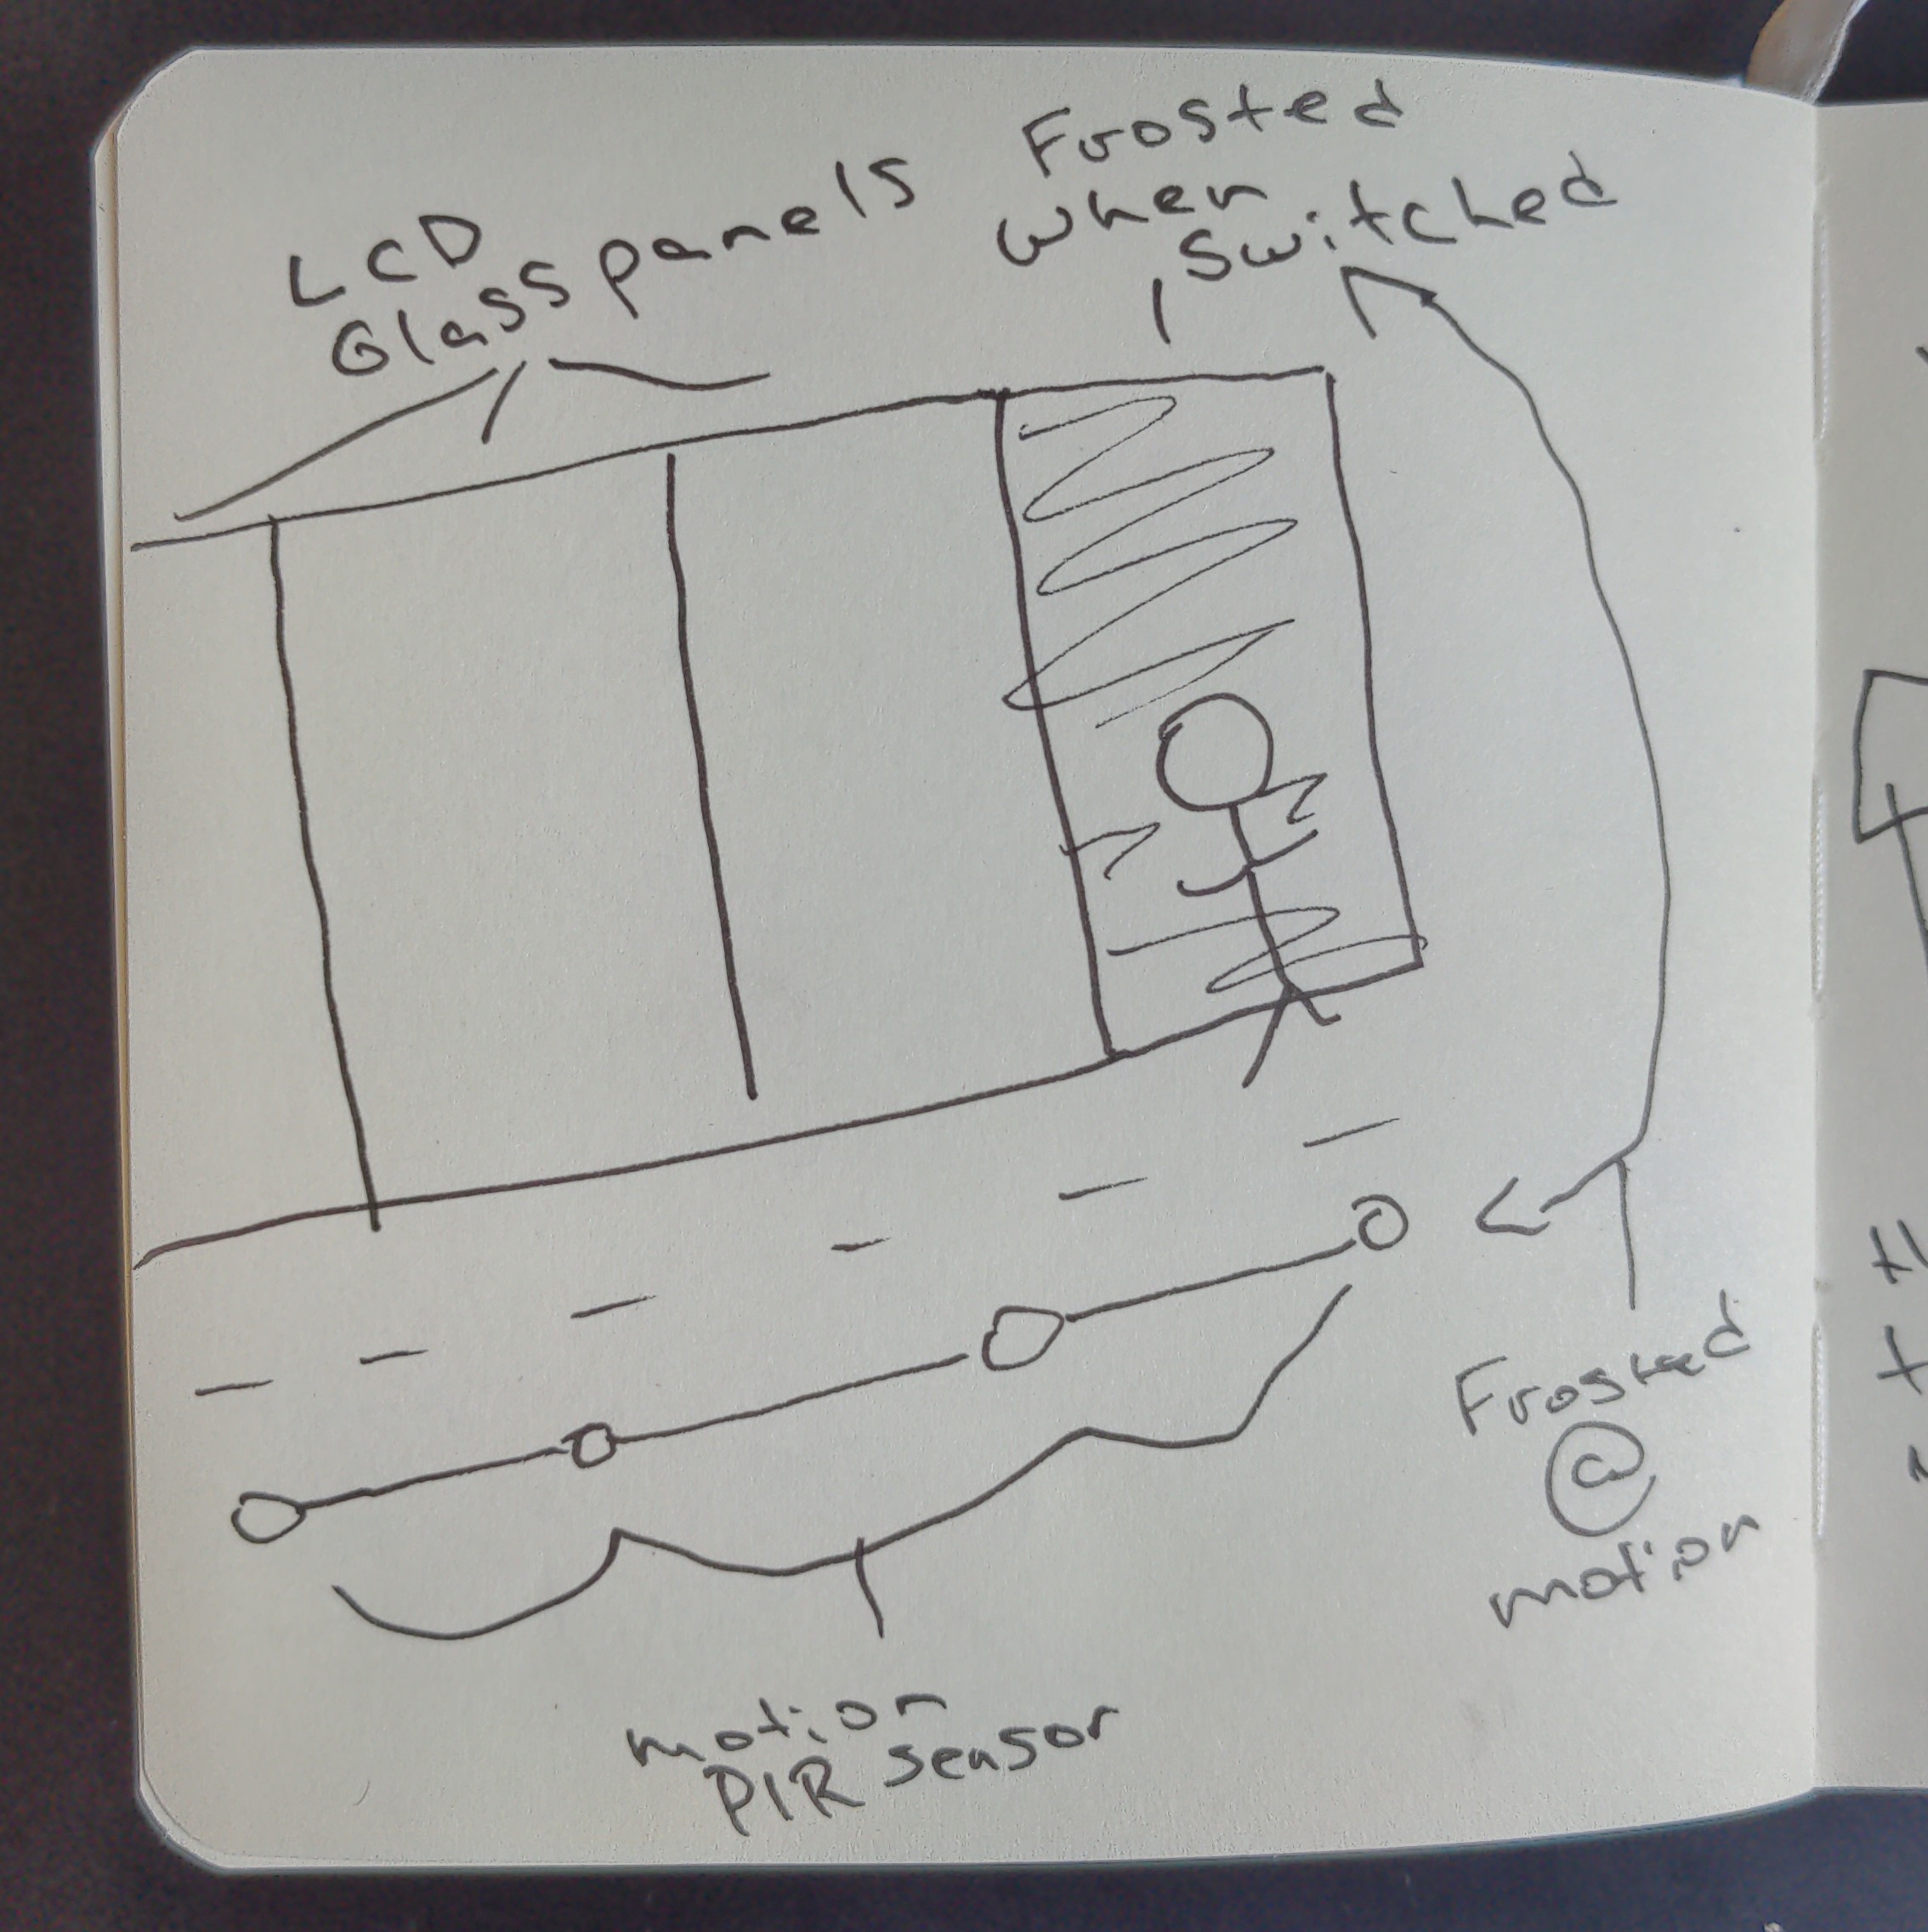 LCD
Glass panels
Frosted
when
switched
Frosted
@
motion
motion
PIR sensor